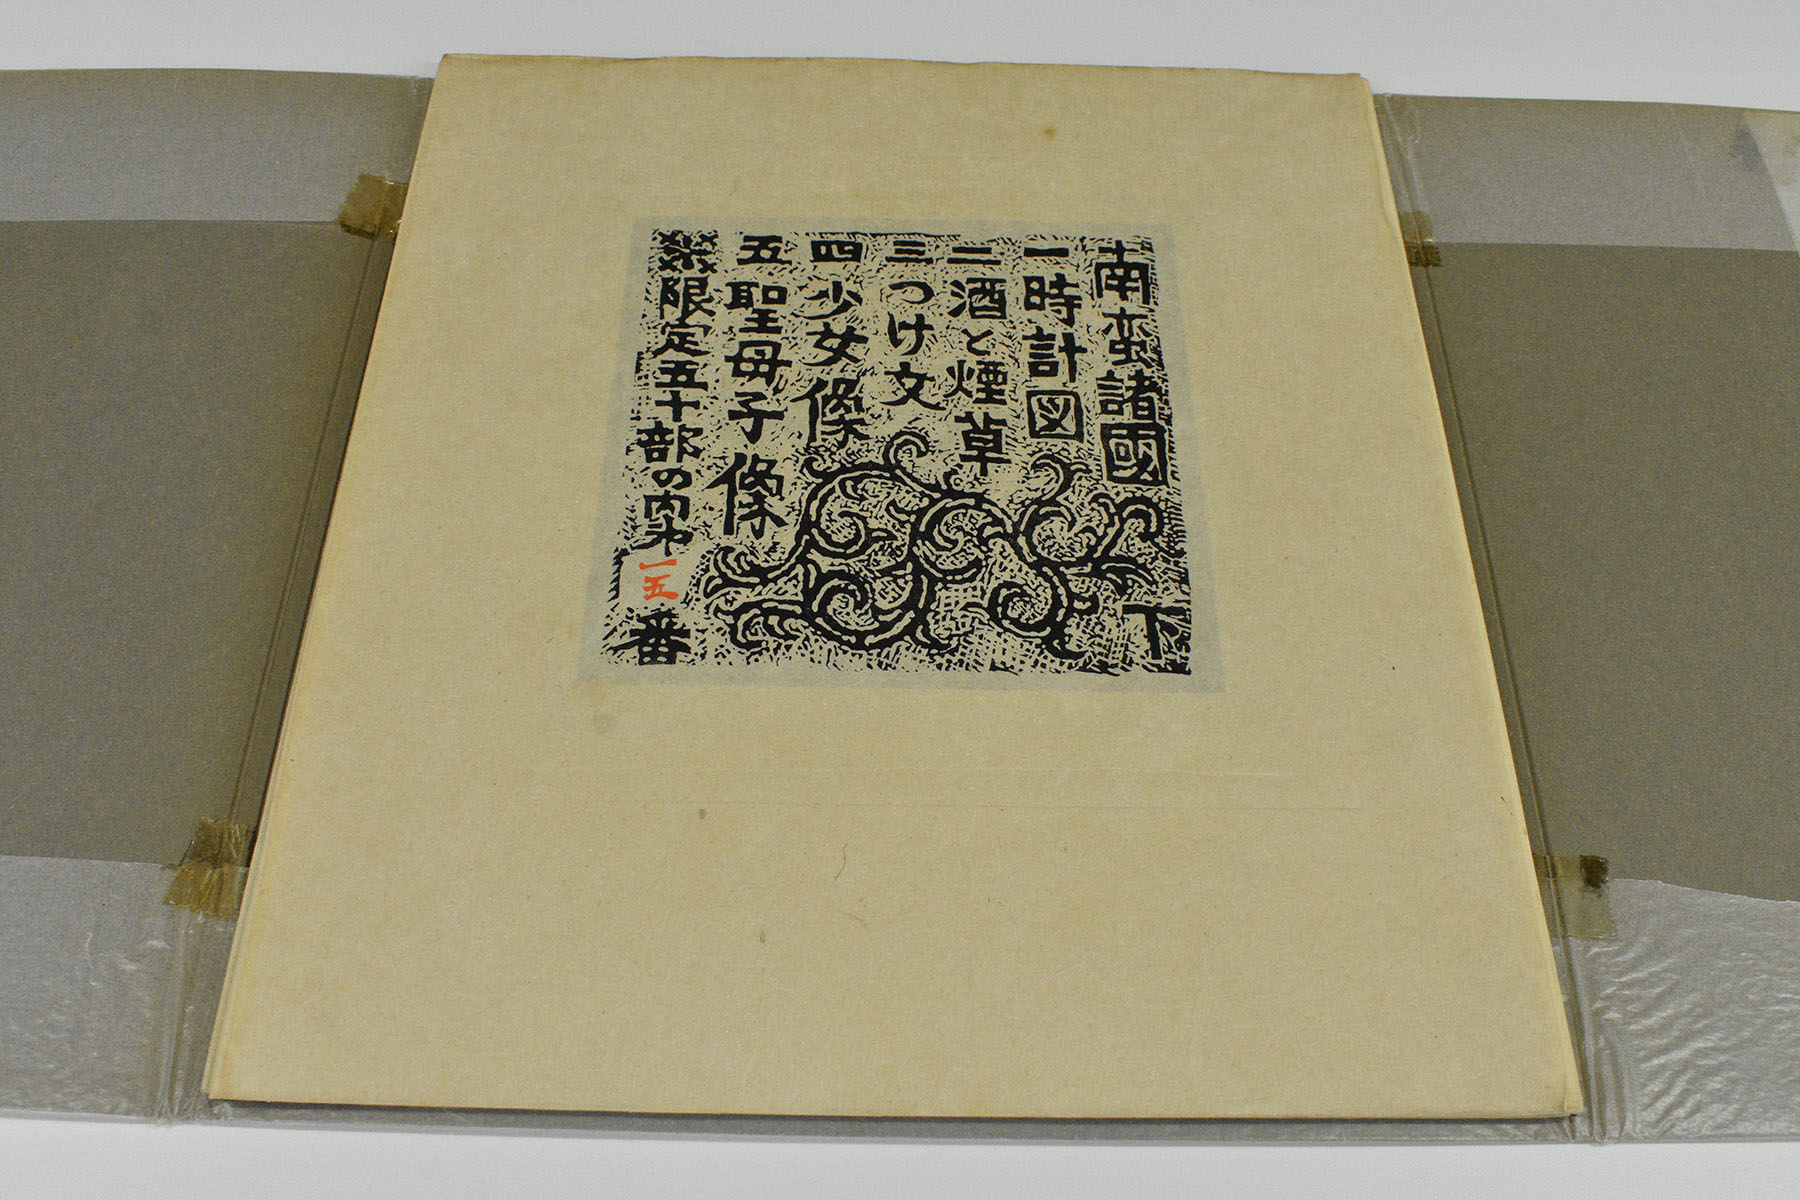 南蛮諸國 下
一時計図
二酒と煙草
三つけ文
四少女像
五聖母子像
限定五十部の内才一五番